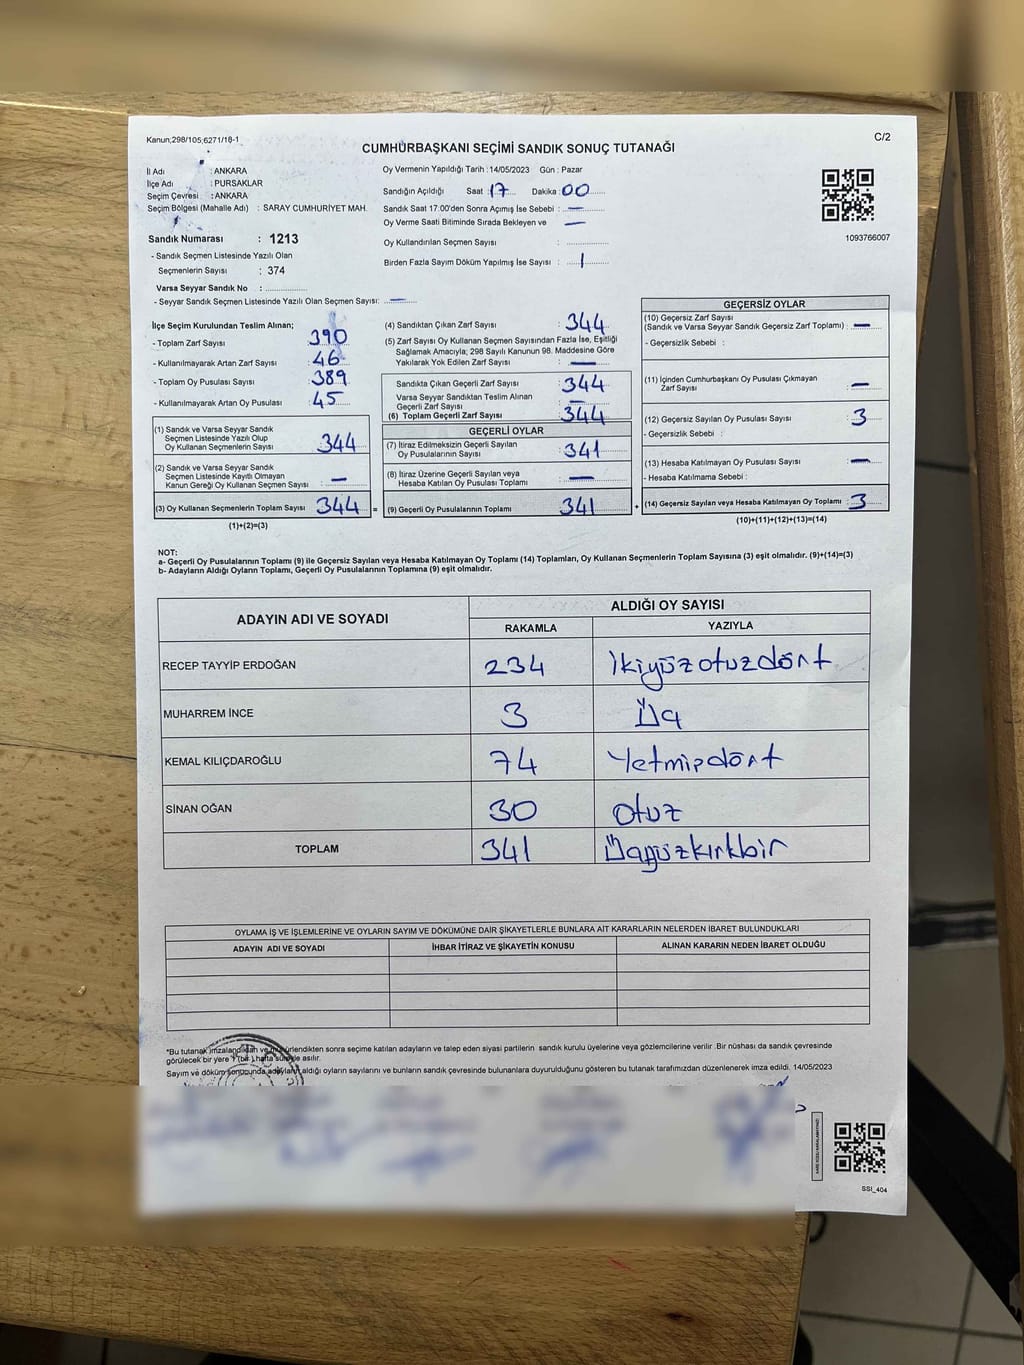 Kanun;298/105,6271/18-1
C/2
CUMHURBAŞKANI SEÇİMİ SANDIK SONUÇ TUTANAĞI
İl Adı : ANKARA
İlçe Adı : PURSAKLAR
Seçim Çevresi : ANKARA
Seçim Bölgesi (Mahalle Adı) : SARAY CUMHURİYET MAH.
Sandık Numarası : 1213
- Sandık Seçmen Listesinde Yazılı Olan
Seçmenlerin Sayısı : 374
Varsa Seyyar Sandık No :
- Seyyar Sandık Seçmen Listesinde Yazılı Olan Seçmen Sayısı: —
Oy Vermenin Yapıldığı Tarih : 14/05/2023 Gün : Pazar
Sandığın Açıldığı Saat : 17 Dakika : 00
Sandık Saat 17.00'den Sonra Açımış İse Sebebi : —
Oy Verme Saati Bitiminde Sırada Bekleyen ve —
Oy Kullandırılan Seçmen Sayısı :
Birden Fazla Sayım Döküm Yapılmış İse Sayısı : 1
1093766007
İlçe Seçim Kurulundan Teslim Alınan;
- Toplam Zarf Sayısı 390
- Kullanılmayarak Artan Zarf Sayısı 46
- Toplam Oy Pusulası Sayısı 389
- Kullanılmayarak Artan Oy Pusulası 45
(1) Sandık ve Varsa Seyyar Sandık
Seçmen Listesinde Yazılı Olup
Oy Kullanan Seçmenlerin Sayısı : 344
(2) Sandık ve Varsa Seyyar Sandık
Seçmen Listesinde Kayıtlı Olmayan
Kanun Gereği Oy Kullanan Seçmen Sayısı : —
(3) Oy Kullanan Seçmenlerin Toplam Sayısı : 344 =
(1)+(2)=(3)
(4) Sandıktan Çıkan Zarf Sayısı : 344
(5) Zarf Sayısı Oy Kullanan Seçmen Sayısından Fazla İse, Eşitliği
Sağlamak Amacıyla; 298 Sayılı Kanunun 98. Maddesine Göre
Yakılarak Yok Edilen Zarf Sayısı : —
Sandıkta Çıkan Geçerli Zarf Sayısı : 344
Varsa Seyyar Sandıktan Teslim Alınan
Geçerli Zarf Sayısı : —
(6) Toplam Geçerli Zarf Sayısı : 344
GEÇERLİ OYLAR
(7) İtiraz Edilmeksizin Geçerli Sayılan
Oy Pusulalarının Sayısı : 341
(8) İtiraz Üzerine Geçerli Sayılan veya
Hesaba Katılan Oy Pusulası Toplamı : —
(9) Geçerli Oy Pusulalarının Toplamı : 341 +
GEÇERSİZ OYLAR
(10) Geçersiz Zarf Sayısı
(Sandık ve Varsa Seyyar Sandık Geçersiz Zarf Toplamı) : —
- Geçersizlik Sebebi :
(11) İçinden Cumhurbaşkanı Oy Pusulası Çıkmayan
Zarf Sayısı : —
(12) Geçersiz Sayılan Oy Pusulası Sayısı : 3
- Geçersizlik Sebebi :
(13) Hesaba Katılmayan Oy Pusulası Sayısı : —
- Hesaba Katılmama Sebebi :
(14) Geçersiz Sayılan veya Hesaba Katılmayan Oy Toplamı : 3
(10)+(11)+(12)+(13)=(14)
NOT:
a- Geçerli Oy Pusulalarının Toplamı (9) ile Geçersiz Sayılan veya Hesaba Katılmayan Oy Toplamı (14) Toplamları, Oy Kullanan Seçmenlerin Toplam Sayısına (3) eşit olmalıdır. (9)+(14)=(3)
b- Adayların Aldığı Oyların Toplamı, Geçerli Oy Pusulalarının Toplamına (9) eşit olmalıdır.
ADAYIN ADI VE SOYADI ALDIĞI OY SAYISI
RAKAMLA YAZIYLA
RECEP TAYYİP ERDOĞAN 234 ikiyüzotuzdört
MUHARREM İNCE 3 Üç
KEMAL KILIÇDAROĞLU 74 Yetmişdört
SİNAN OĞAN 30 otuz
TOPLAM 341 Üçyüzkırkbir
OYLAMA İŞ VE İŞLEMLERİNE VE OYLARIN SAYIM VE DÖKÜMÜNE DAİR ŞİKAYETLERLE BUNLARA AİT KARARLARIN NELERDEN İBARET BULUNDUKLARI
ADAYIN ADI VE SOYADI İHBAR İTİRAZ VE ŞİKAYETİN KONUSU ALINAN KARARIN NEDEN İBARET OLDUĞU
*Bu tutanak imzalandıktan ve mühürlendikten sonra seçime katılan adayların ve talep eden siyasi partilerin sandık kurulu üyelerine veya gözlemcilerine verilir .Bir nüshası da sandık çevresinde
görülecek bir yere 1 (bir) hafta süreyle asılır.
Sayım ve döküm sonucunda adayların aldığı oyların sayılarını ve bunların sandık çevresinde bulunanlara duyurulduğunu gösteren bu tutanak tarafımızdan düzenlenerek imza edildi. 14/05/2023
SSI_404